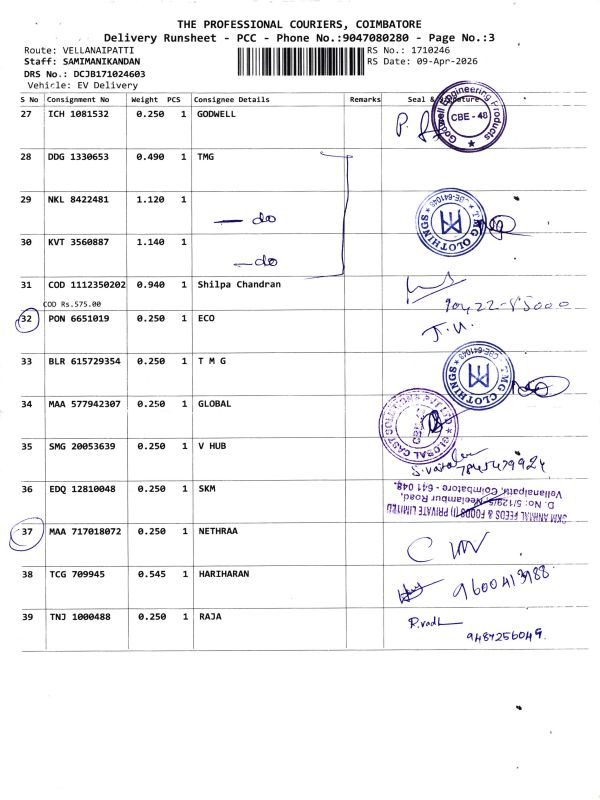 THE PROFESSIONAL COURIERS, COIMBATORE
Delivery Runsheet - PCC - Phone No.:9047080280 - Page No.:3
Route: VELLANAIPATTI RS No.: 1710246
Staff: SAMIMANIKANDAN RS Date: 09-Apr-2026
DRS No.: DCJB171024603
Vehicle: EV Delivery
S No Consignment No Weight PCS Consignee Details Remarks Seal & Signature
27 ICH 1081532 0.250 1 GODWELL
Godwell Engineering Products CBE - 48
28 DDG 1330653 0.490 1 TMG
29 NKL 8422481 1.120 1 — do
TMG CLOTHINGS CBE-641048
30 KVT 3560887 1.140 1 — do
31 COD 1112350202 0.940 1 Shilpa Chandran
COD Rs.575.00
32 PON 6651019 0.250 1 ECO
J.U.
33 BLR 615729354 0.250 1 T M G
TMG CLOTHINGS CBE-641048
34 MAA 577942307 0.250 1 GLOBAL
GLOBAL CAST
35 SMG 20053639 0.250 1 V HUB
36 EDQ 12810048 0.250 1 SKM
SKM ANIMAL FEEDS & FOODS (I) PRIVATE LIMITED
D. No: 5/129/5, Neelambur Road,
Vellanaipatti, Coimbatore - 641 048.
37 MAA 717018072 0.250 1 NETHRAA
38 TCG 709945 0.545 1 HARIHARAN
9600413988
39 TNJ 1000488 0.250 1 RAJA
9487256049.